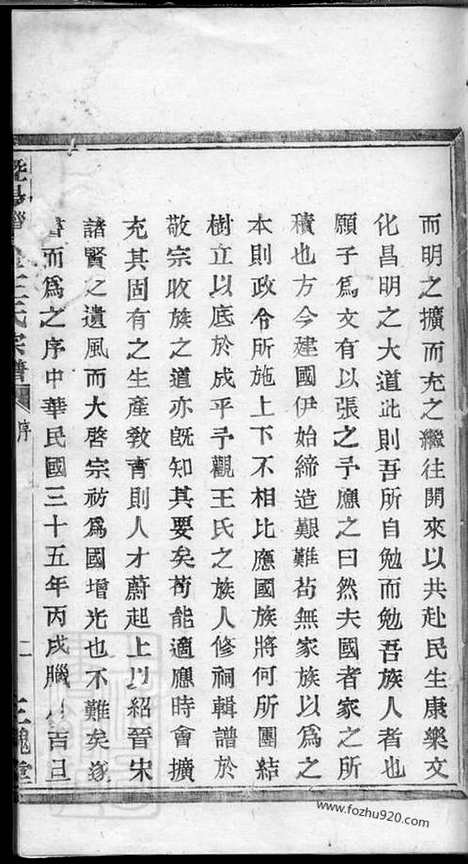 而明之擴而充之繼往開來以共赴民生康樂文
化昌明之大道此則吾所自勉而勉吾族人者也
願子爲文有以張之予應之曰然夫國者家之所
積也方今建國伊始締造艱難苟無家族以爲之
本則政令所施上下不相比應國族將何所團結
樹立以底於成乎予觀王氏之族人修祠輯譜於
敬宗收族之道亦旣知其要矣苟能適應時會擴
充其固有之生產敎育則人才蔚起上以紹晉宋
諸賢之遺風而大啓宗祊爲國增光也不難矣遂
書而爲之序中華民國三十五年丙戌臘月吉旦
王氏宗譜
序
二
三槐堂
www.fozhu920.com